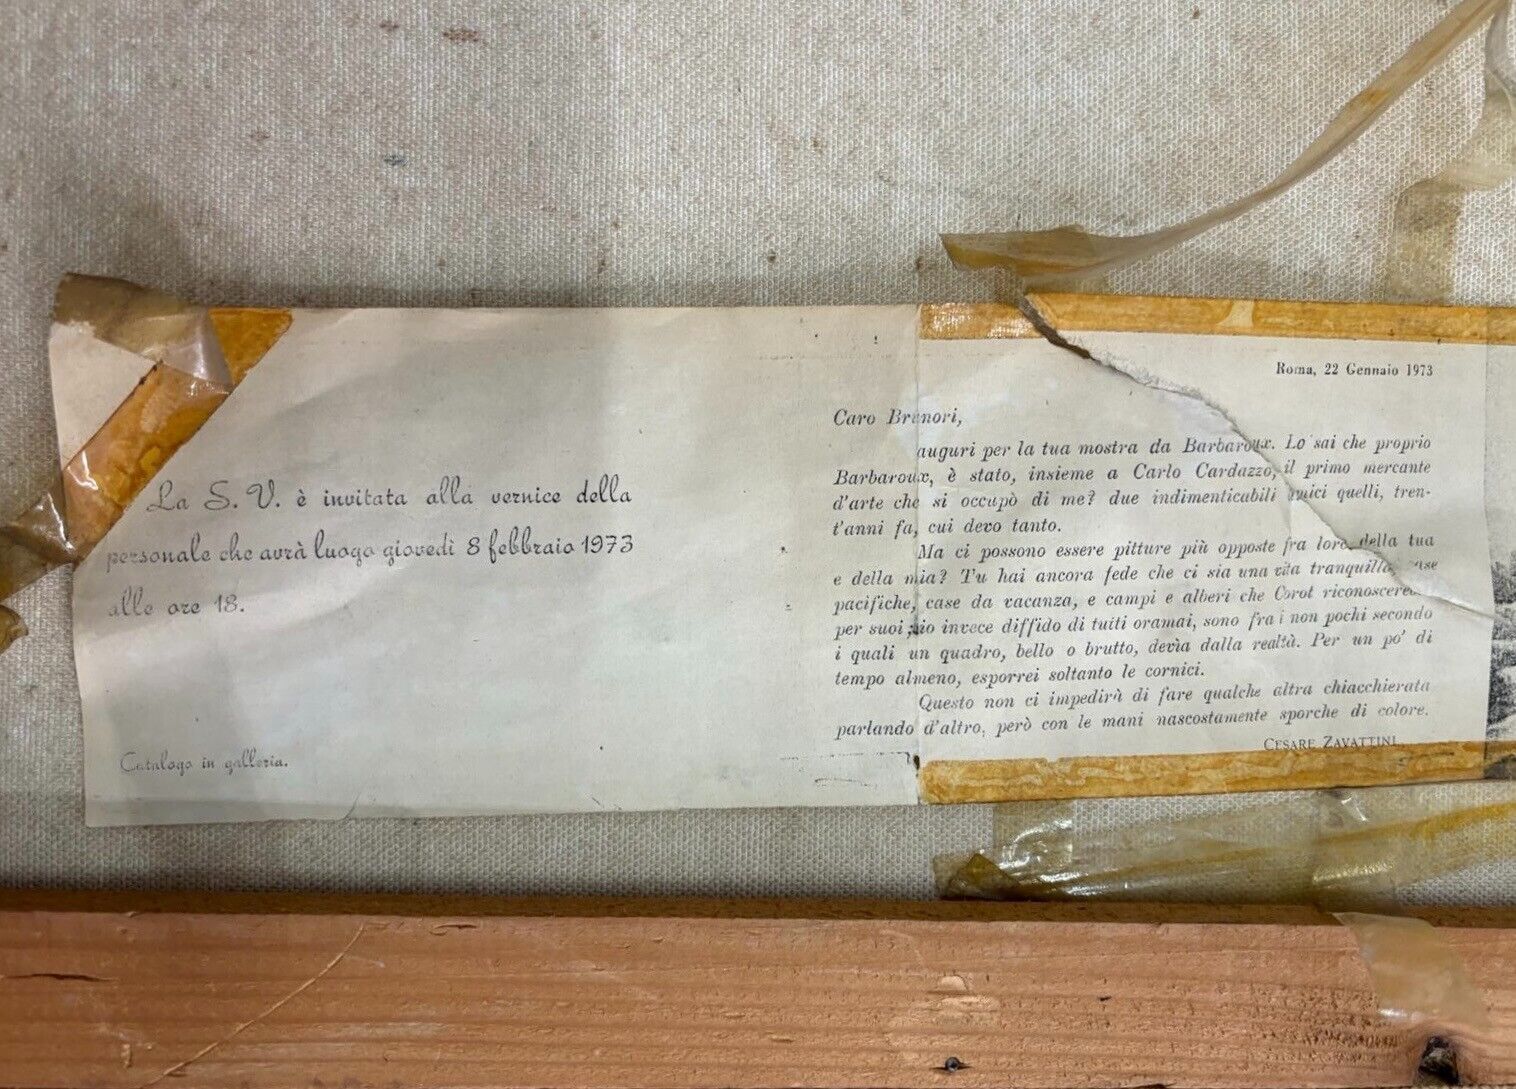 La S. V. è invitata alla vernice della
personale che avrà luogo giovedì 8 febbraio 1973
alle ore 18.
Catalogo in galleria.
Roma, 22 Gennaio 1973
Caro Brunori,
auguri per la tua mostra da Barbaroux. Lo sai che proprio
Barbaroux, è stato, insieme a Carlo Cardazzo, il primo mercante
d'arte che si occupò di me? due indimenticabili amici quelli, tren-
t'anni fa, cui devo tanto.
Ma ci possono essere pitture più opposte fra loro della tua
e della mia? Tu hai ancora fede che ci sia una vita tranquilla,
pacifiche, case da vacanza, e campi e alberi che Corot
per suoi; io invece diffido di tutti oramai, sono fra i non pochi secondo
i quali un quadro, bello o brutto, devìa dalla realtà. Per un po' di
tempo almeno, esporrei soltanto le cornici.
Questo non ci impedirà di fare qualche altra chiacchierata
parlando d'altro, però con le mani nascostamente sporche di colore.
CESARE ZAVATTINI